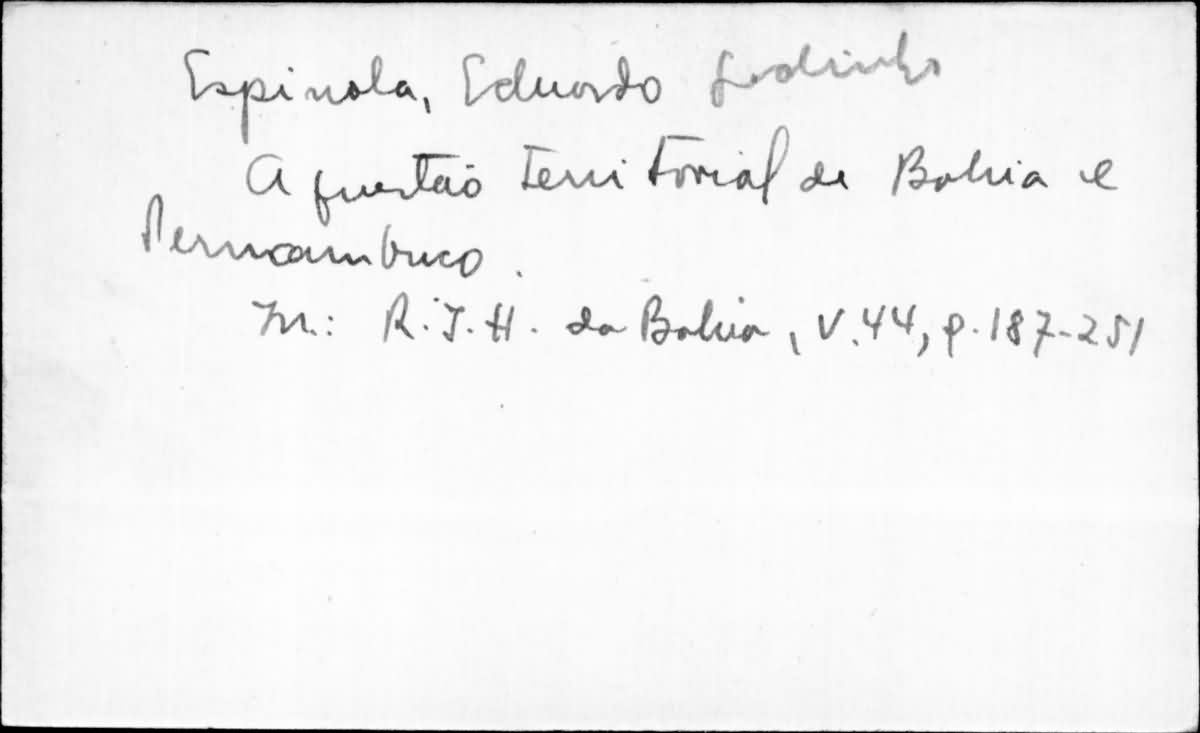 Espinola, Eduardo Godinho
A questão territorial de Bahia e
Pernambuco.
In: R.I.H. da Bahia, v.44, p.187-251